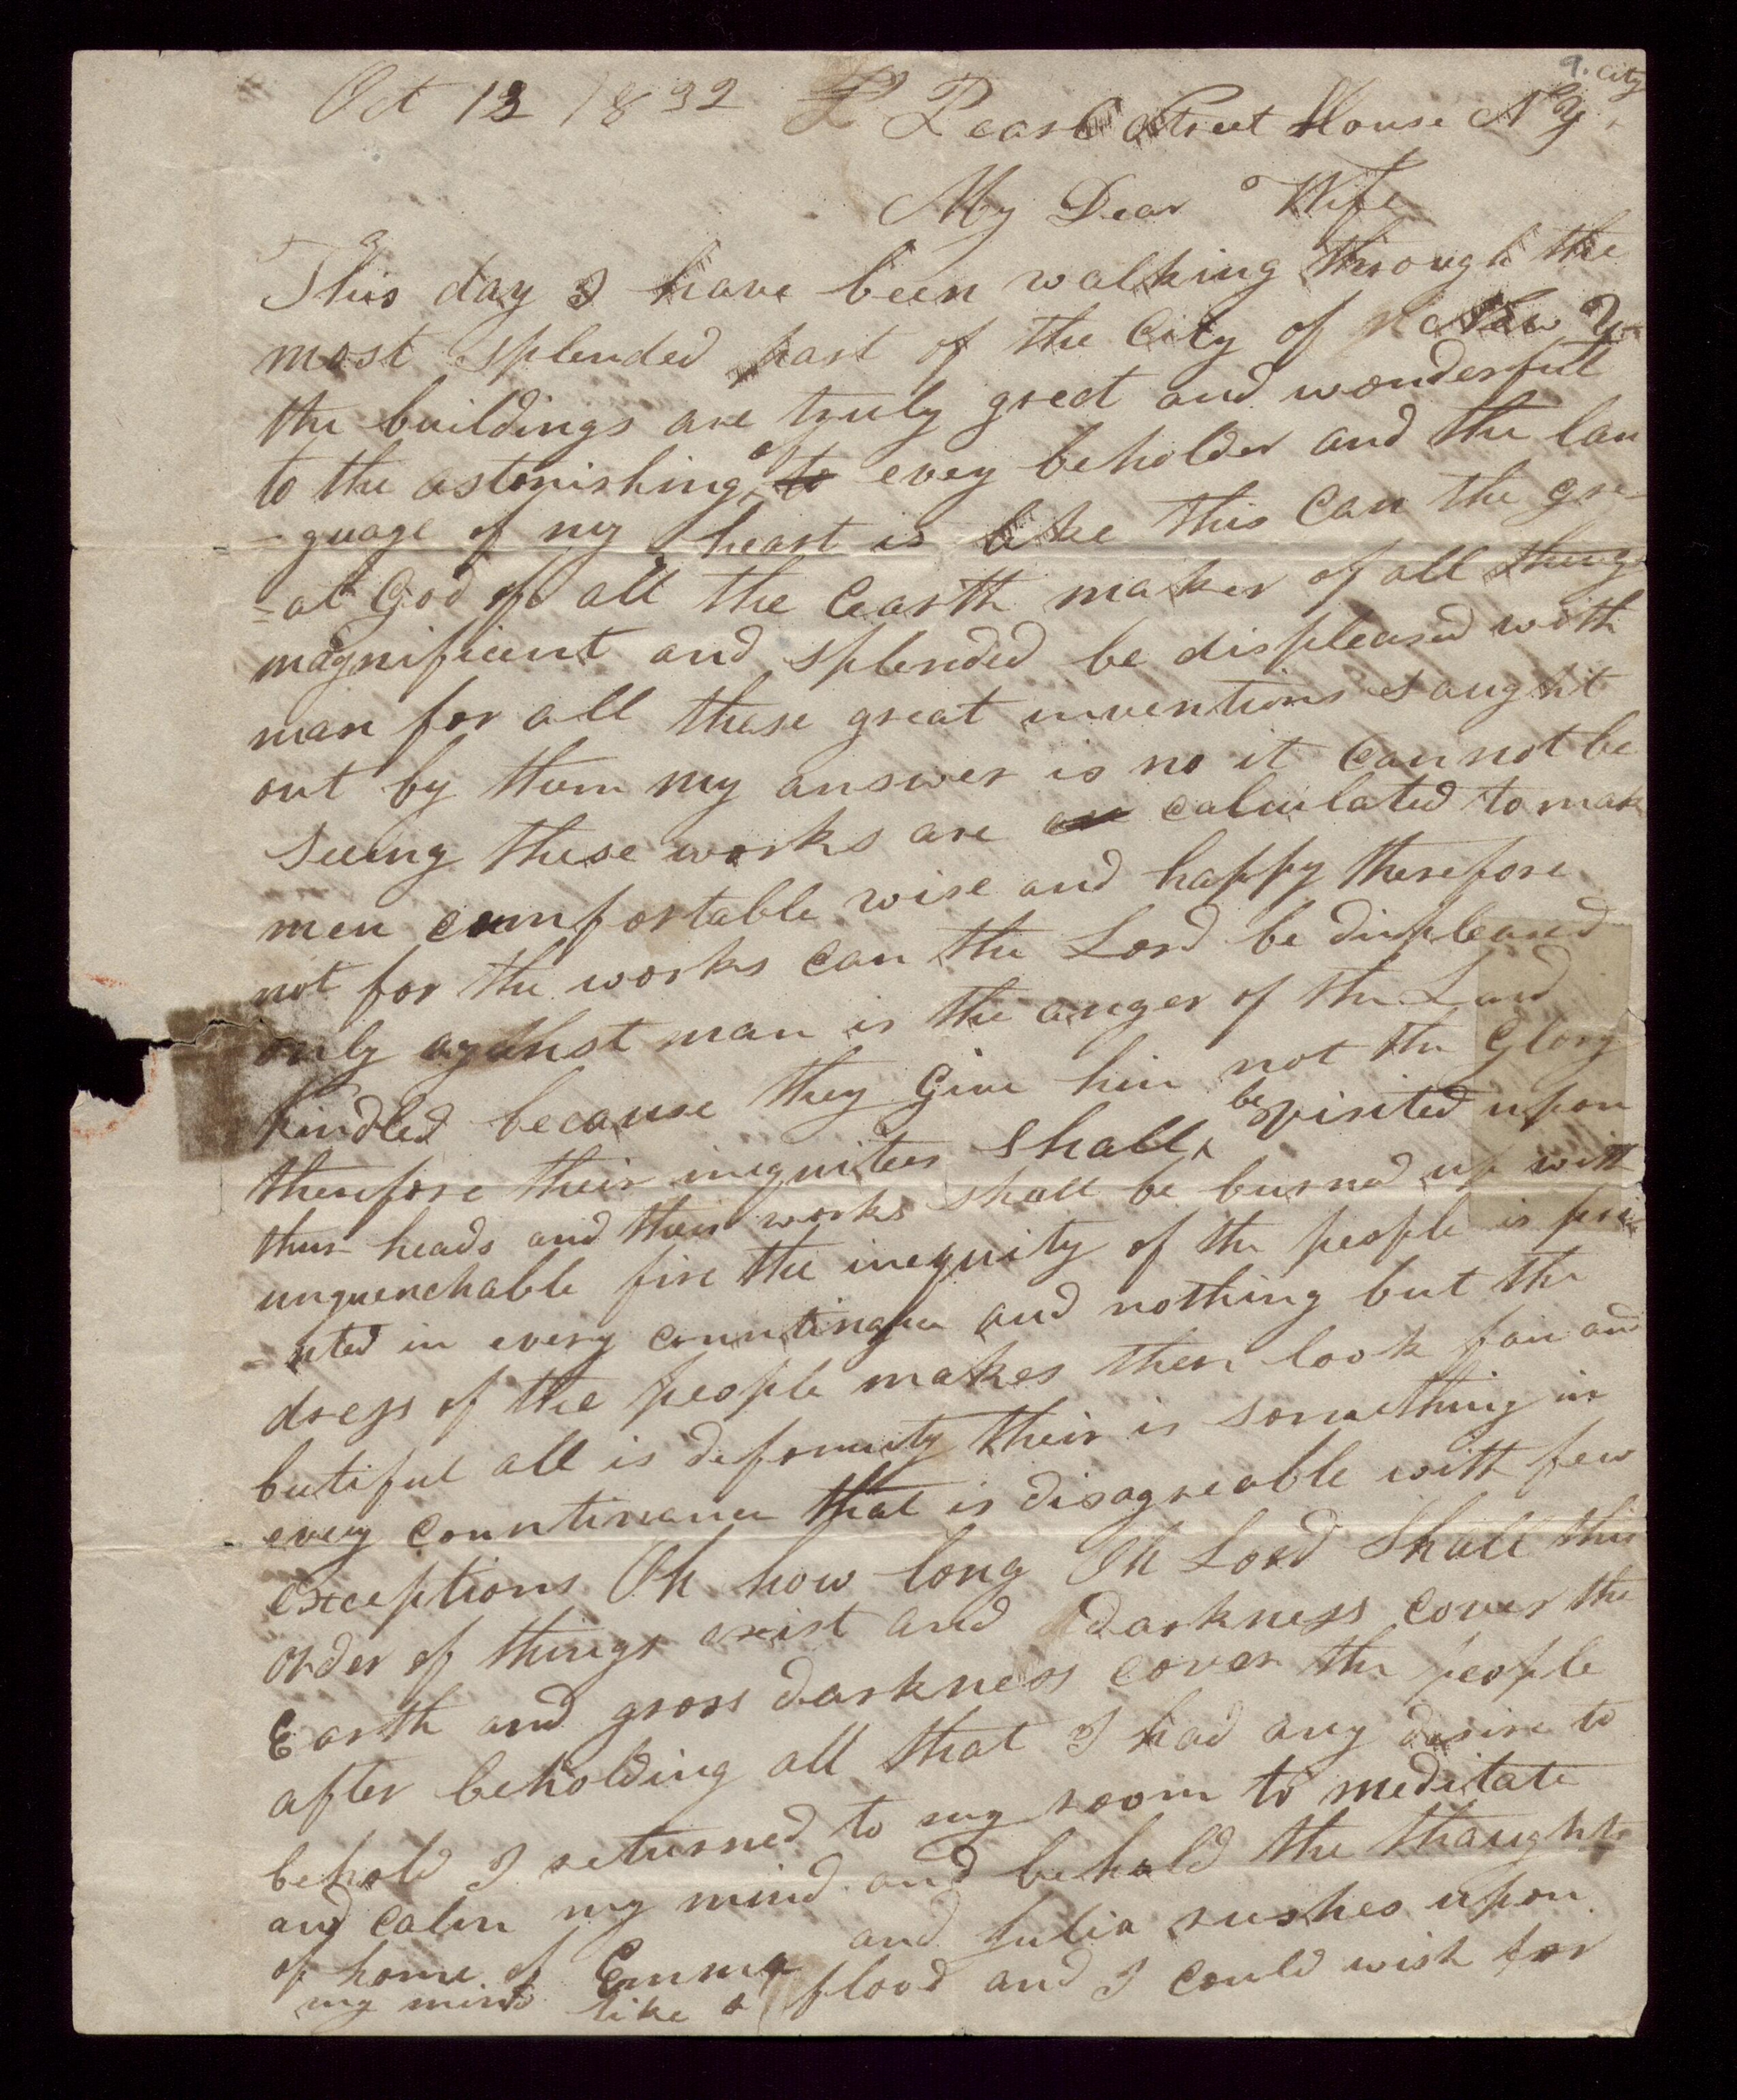 9. City
Oct 13 1832 P Pearl Street House N Y
My Dear Wife
This day I have been walking through the
most splended part of the City of New Y
the buildings are truly great and wonderful
to the astonishing of to evey beholder and the lan
=guage of my heart is like this can the gre
=at God of all the Earth maker of all thing
magnificent and splended be displeased with
man for all these great inventions saught
out by them my answer is no it can not be
seeing these works are are calculated to mak
men comfortable wise and happy therefore
not for the works can the Lord be displeased
only against man is the anger of the Lord
kindled because they Give him not the Glory
therefore their inequities shall be visited upon
their heads and their works shall be burned up with
unquenchable fire the inequity of the people is pri
=nted in every countinance and nothing but the
dress of the people makes them look fair and
butiful all is deformity their is something in
every countinance that is disagreable with few
exceptions Oh how long Oh Lord Shall this
order of things exist and darkness cover the
Earth and gross darkness cover the people
after beholding all that I had any desire to
behold I returned to my room to meditate
and calm my mind and behold the thaughts
of home of Emma and Julia rushes upon
my mind like a flood and I could wish for